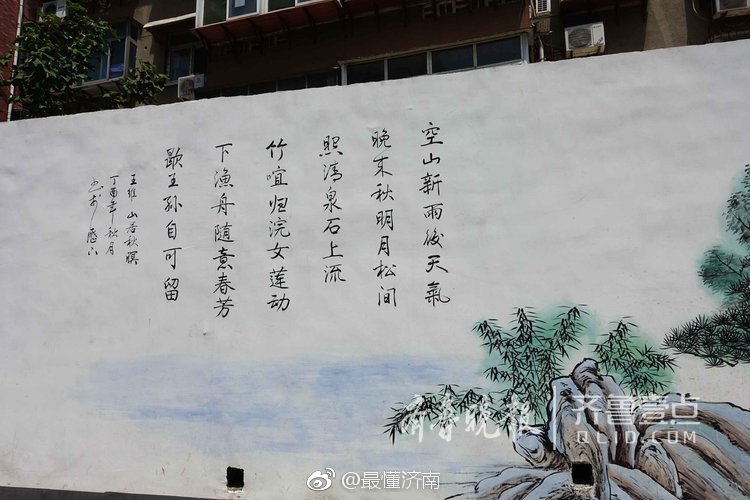 空山新雨後天氣
晚来秋明月松间
照清泉石上流
竹喧归浣女莲动
下渔舟随意春芳
歇王孙自可留
王维 山居秋暝
丁酉年秋月
齐鲁晚报
齐鲁壹点
QLYD.COM
@最懂济南